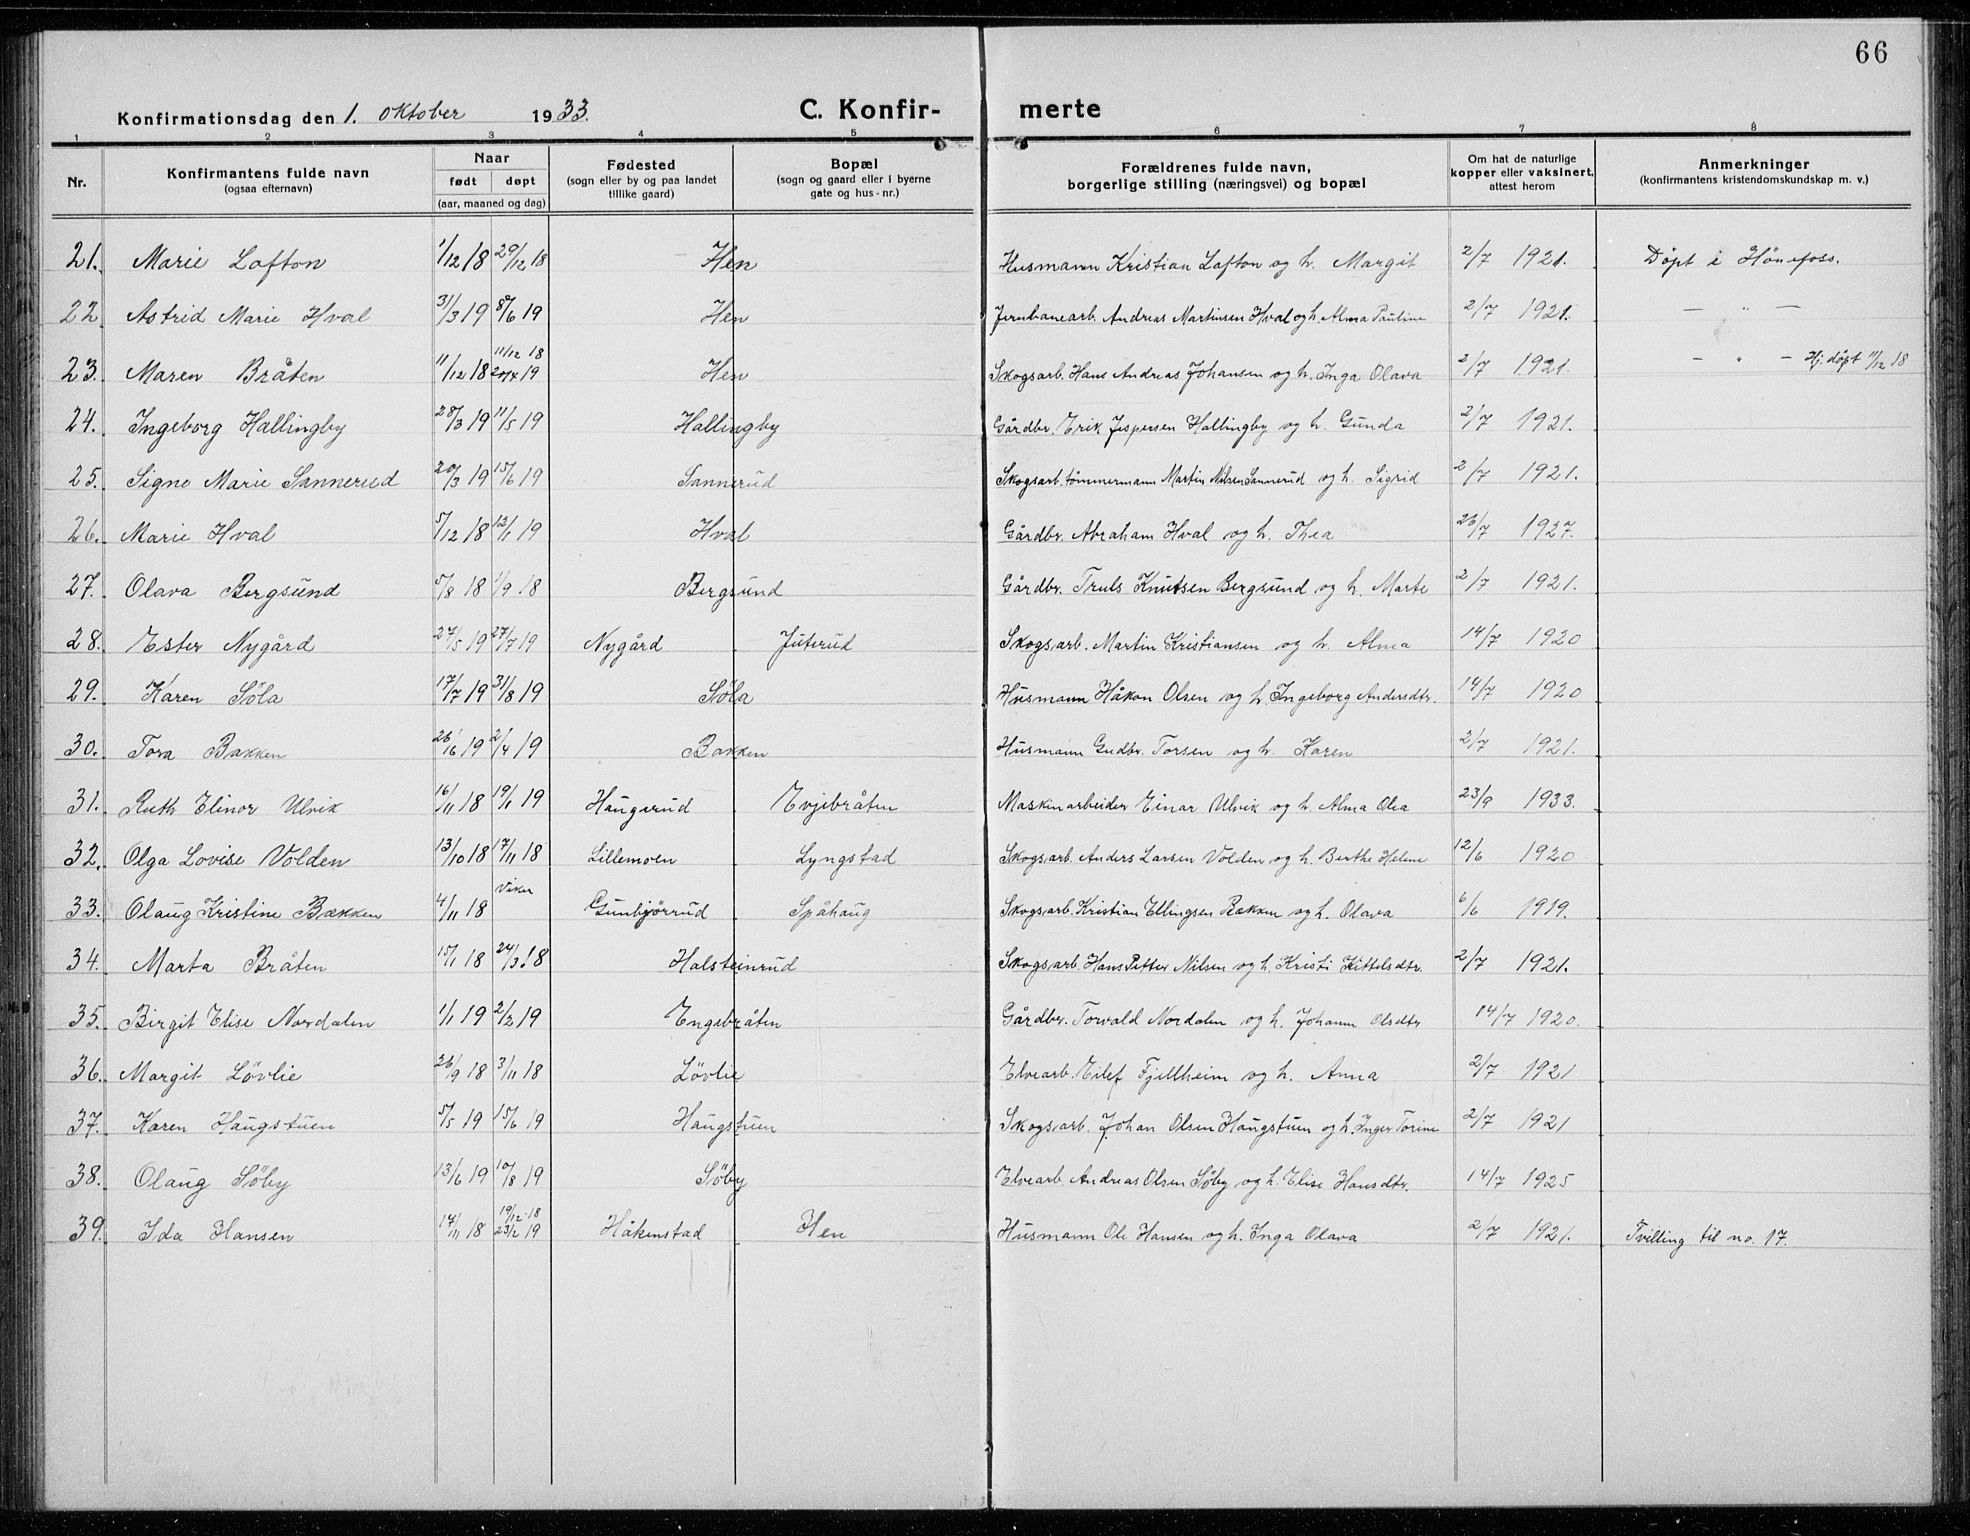 66
Konfirmationsdag den 1. oktober 1933. C. Konfir- merte
1 2 3 4 5 6 7 8
Nr. Konfirmantens fulde navn (ogsaa efternavn) Naar født døpt (aar, maaned og dag) Fødested (sogn eller by og paa landet tillike gaard) Bopæl (sogn og gaard eller i byerne gate og hus-nr.) Forældrenes fulde navn, borgerlige stilling (næringsvei) og bopæl Om hat de naturlige kopper eller vaksinert, attest herom Anmerkninger (konfirmantens kristendomskundskap m. v.)
21. Marie Lofton 1/12 18 29/12 18 Hen Husmann Kristian Lofton og h. Margit 2/7 1921. Døpt i Hönefoss.
22. Astrid Marie Hval 31/3 19 8/6 19 Hen Jernbanearb. Andreas Martinsen Hval og h. Alma Pauline 2/7 1921. — " —
11/12 18
23. Maren Bråten 11/12 18 20/4 19 Hen Skogsarb. Hans Andreas Johansen og h. Inga Olava 2/7 1921. — " — Hj. døpt 11/12 18
24. Ingeborg Hallingby 28/3 19 11/5 19 Hallingby Gårdbr. Erik Jespersen Hallingby og h. Gunda 2/7 1921.
25. Signe Marie Sannerud 20/3 19 15/6 19 Sannerud Skogsarb. tömmermann Martin Nilsen Sannerud og h. Sigrid 2/7 1921.
26. Marie Hval 5/12 18 12/1 19 Hval Gårdbr. Abraham Hval og h. Thea 26/7 1927.
27. Olava Bergsund 5/8 18 1/9 18 Bergsund Gårdbr. Truls Knutsen Bergsund og h. Marte 2/7 1921.
28. Ester Nygård 27/5 19 27/7 19 Nygård Juterud Skogsarb. Martin Kristiansen og h. Alma 14/7 1920
29. Karen Söla 17/7 19 31/8 19 Söla Husmann Håkon Olsen og h. Ingeborg Andersdtr. 14/7 1920
30. Tora Bakken 26/6 19 2/4 19 Bakken Husmann Gudbr. Torsen og h. Karen 2/7 1921.
31. Ruth Elinor Ulvik 16/11 18 19/1 19 Haugerud Evjebråten Maskinarbeider Einar Ulvik og h. Alma Olea 23/9 1933.
32. Olga Lovise Volden 13/10 18 17/11 18 Lillemoen Lyngstad Skogsarb. Anders Larsen Volden og h. Berthe Helene 12/6 1920
Viker
33. Olaug Kristine Bækken 4/11 18 Gunbjörrud Spåhaug Skogsarb. Kristian Ellingsen Bækken og h. Olava 6/6 1919.
34. Marta Bråten 15/1 18 24/3 18 Halsteinrud Skogsarb. Hans Petter Nilsen og h. Kristi Kittelsdtr. 2/7 1921.
35. Birgit Elise Nordalen 1/1 19 2/2 19 Engebråten Gårdbr. Torvald Nordalen og h. Johanne Olsdtr 14/7 1920.
36. Margit Lövlie 26/9 18 3/11 18 Lövlie Elvearb. Eilef Fjellheim og h. Anna 2/7 1921
37. Karen Haugstuen 5/5 19 15/6 19 Haugstuen Skogsarb. Johan Olsen Haugstuen og h. Inger Torine 2/7 1921
38. Olaug Söby 13/6 19 10/8 19 Söby Elvearb. Andreas Olsen Söby og h. Elise Hansdtr. 14/7 1925
19/12 18
39. Ida Hansen 14/11 18 23/2 19 Håkenstad Hen Husmann Ole Hansen og h. Inga Olava 2/7 1921. Tvilling til no. 17.